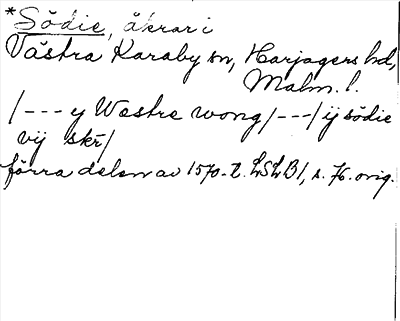 *Södie, åkrar i
Västra Karaby sn, Harjagers hd,
Malm. l.
/---y Westre wong/---/ij södie
vij skr̄/
förra delen av 1570-t. LSLB1, s. 76. orig.